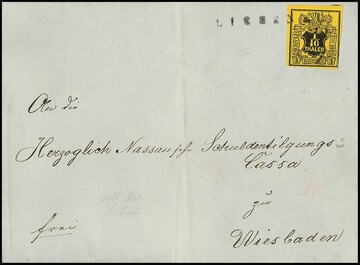 1/10
THALER
An die
Herzoglich Nassau'sche Schuldentilgungs-
Cassa
zu
frei
Wiesbaden